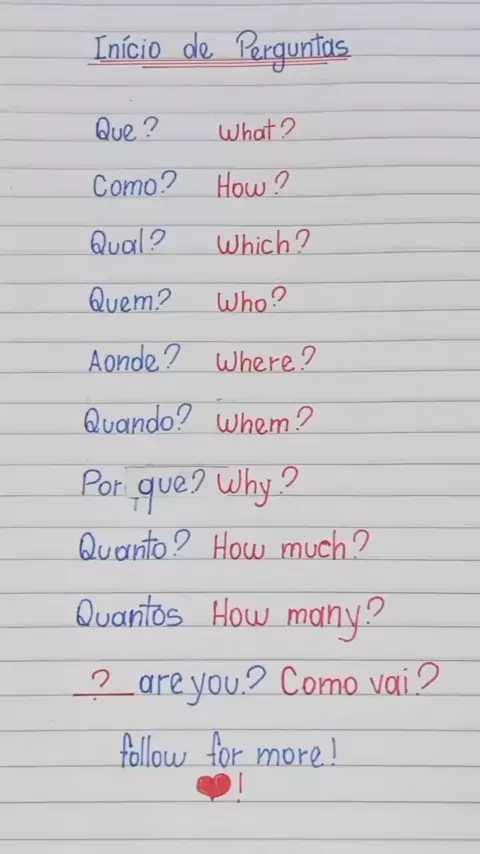 Início de Perguntas
Que? What?
Como? How?
Qual? Which?
Quem? Who?
Aonde? Where?
Quando? Whem?
Por que? Why?
Quanto? How much?
Quantos How many?
? are you? Como vai?
follow for more!
❤!